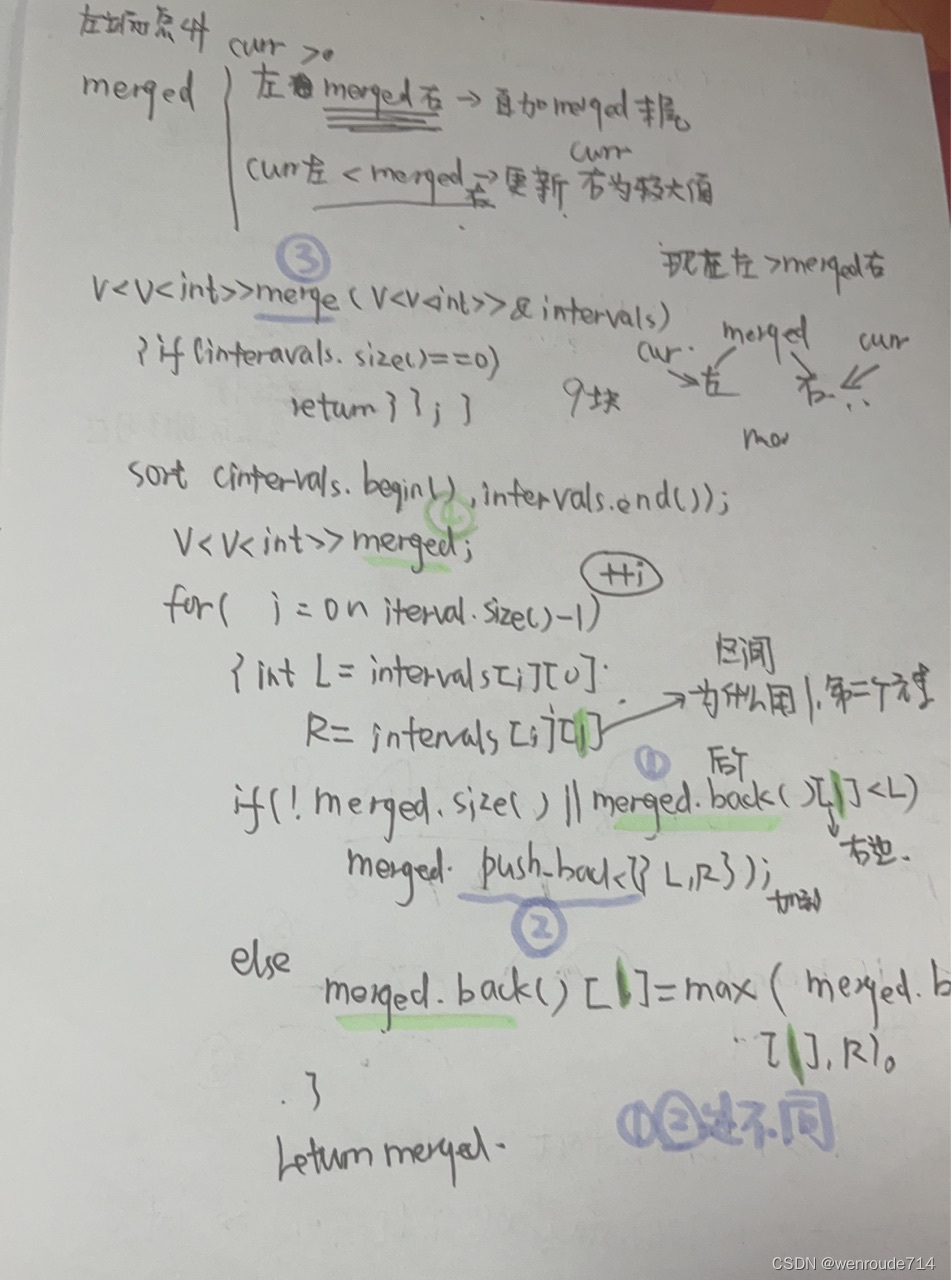 左 curr >
merged 左 merged右 → 直加merged末尾
curr
curr左 < merged右 → 更新 右为较大值
③
现在左>merged右
V<V<int>>merge(V<V<int>>&intervals)
cur. merged curr
左 右
{if(interavals.size()==0)
return { }; }
9块
sort (intervals.begin(),intervals.end());
V<V<int>>merged;
++i
for( i = 0 n iterval.size()-1)
区间
{int L = intervals[i][0].
为什么用1.第二个元素
R= intervals[i][1]
①
if(! merged.size() || merged.back()[1]<L)
右边.
merged. push_back({ L,R});
②
else
merged.back()[1]=max( merged.b
[1],R)。
}
①②不同
return merged.
CSDN @wenroude714